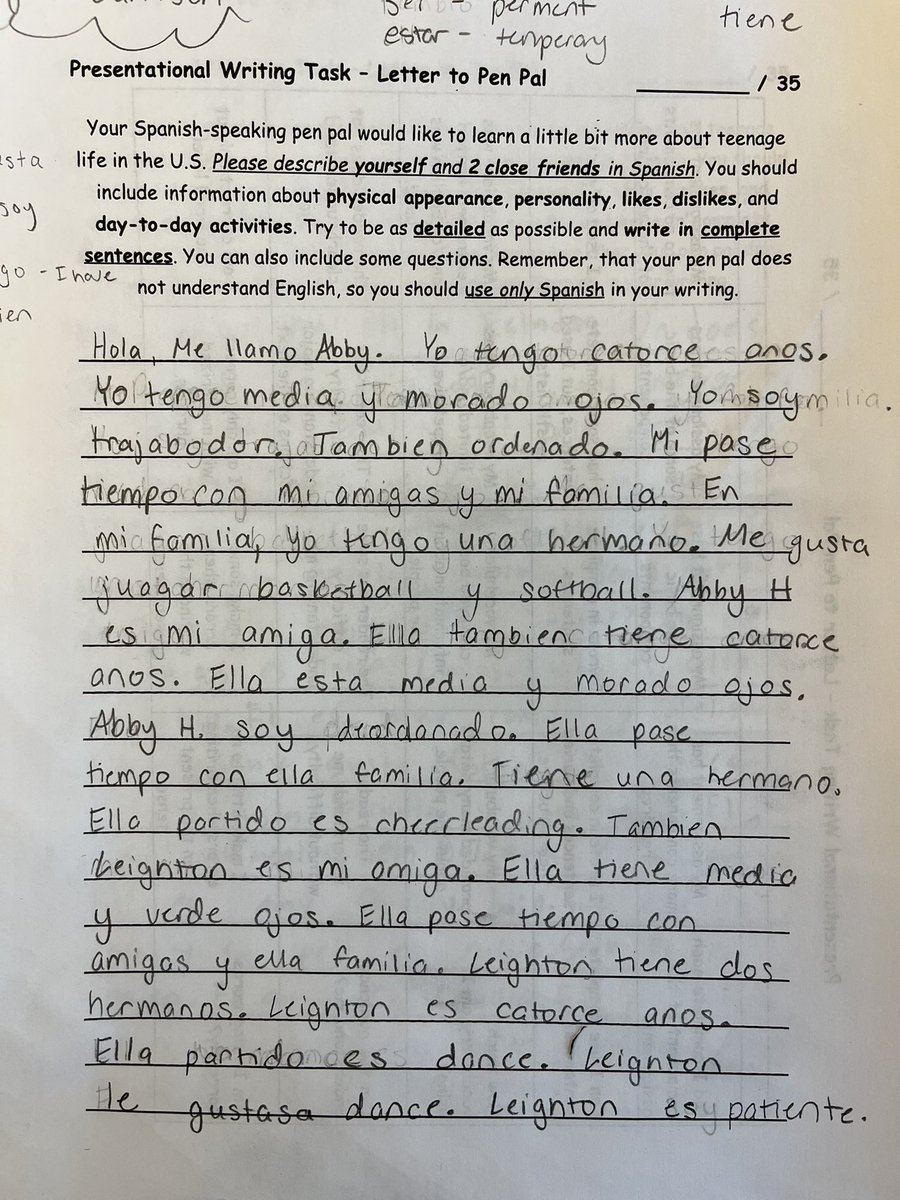 perment tiene
estar - temperary
Presentational Writing Task - Letter to Pen Pal / 35
Your Spanish-speaking pen pal would like to learn a little bit more about teenage
life in the U.S. Please describe yourself and 2 close friends in Spanish. You should
include information about physical appearance, personality, likes, dislikes, and
day-to-day activities. Try to be as detailed as possible and write in complete
sentences. You can also include some questions. Remember, that your pen pal does
not understand English, so you should use only Spanish in your writing.
esta
soy
go - I have
ien
Hola, Me llamo Abby. Yo tengo catorce anos.
Yo tengo media y morado ojos. Yo soy
trajabodor. Tambien ordenado. Mi pase
tiempo con mi amigas y mi familia. En
mi familia, yo tengo una hermano. Me gusta
juagar basketball y softball. Abby H
es mi amiga. Ella tambien tiene catorce
anos. Ella esta media y morado ojos.
Abby H. soy deordonado. Ella pase
tiempo con ella familia. Tiene una hermano.
Ella partido es cheerleading. Tambien
Leignton es mi amiga. Ella tiene media
y verde ojos. Ella pase tiempo con
amigas y ella familia. Leignton tiene dos
hermanos. Leignton es catorce anos.
Ella partido es dance. Leignton
le gustasa dance. Leignton es patiente.